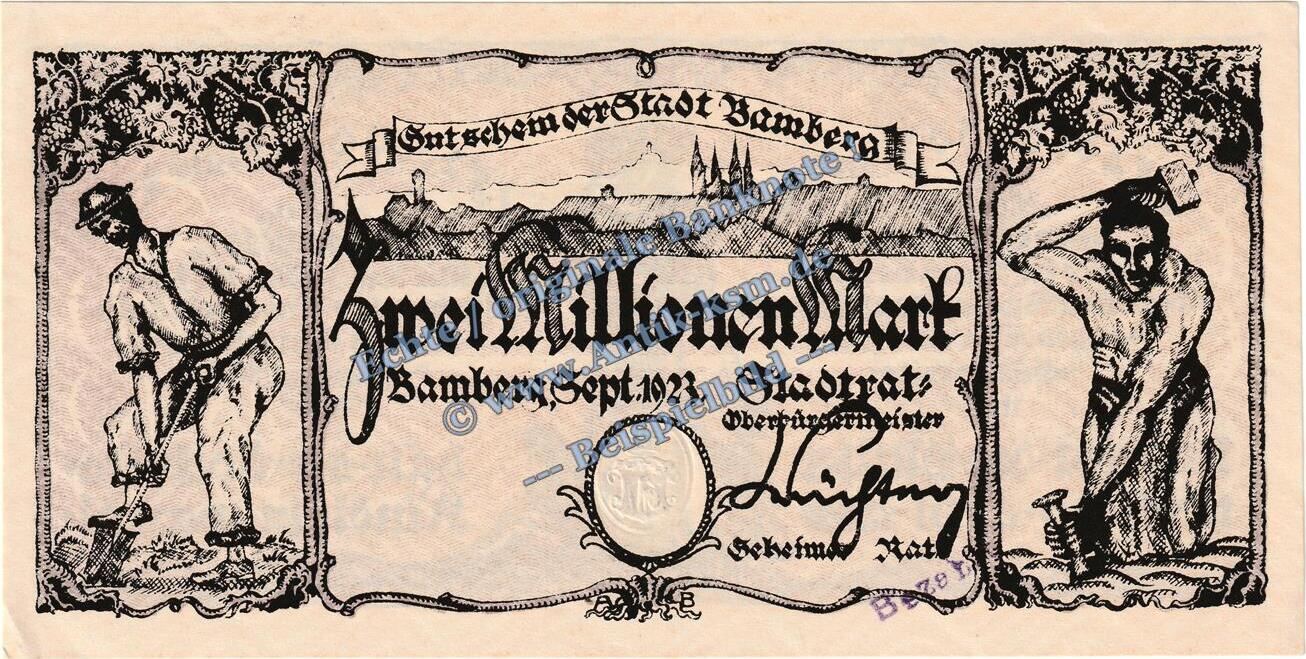 Gutschein der Stadt Bamberg
Zwei Millionen Mark
Bamberg, Sept. 1923 Stadtrat:
Oberbürgermeister
Geheimer Rat
A B
Bezah
Echte / originale Banknote !
© www.Antik-ksm.de
--- Beispielbild ---